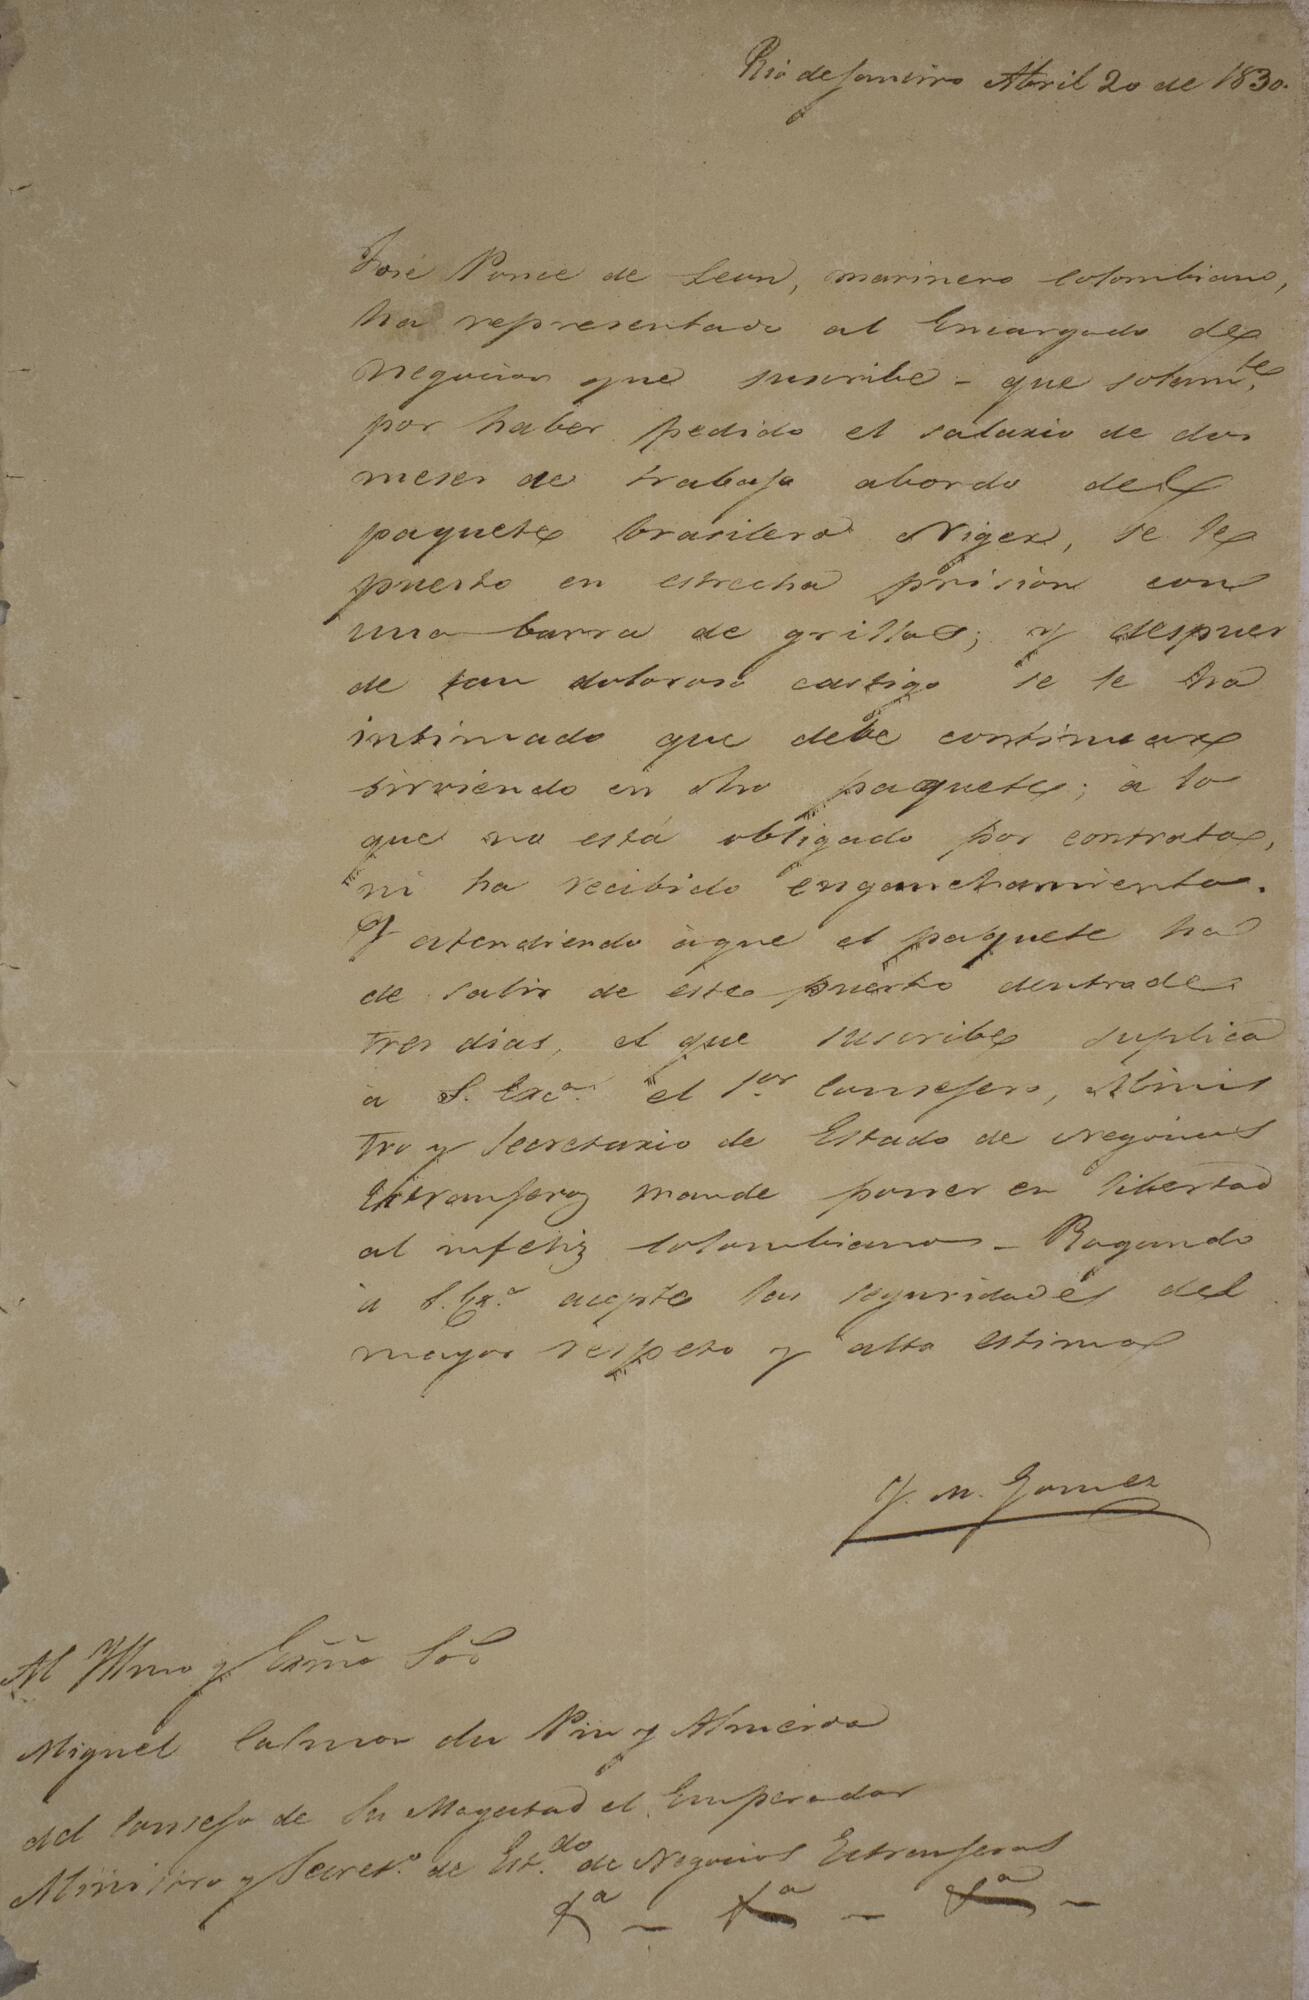 Rio de Janeiro Abril 20 de 1830.
José Ponce de Leon, marinero colombiano,
ha representado al Encargado de
Negocios que suscribe - que solamte,
por haber pedido el salario de dos
meses de trabajo abordo del
paquete brasilero Niger, se le
puesto en estrecha prision con
una barra de grillos; y despues
de tan doloroso castigo se le ha
intimado que debe continuar
sirviendo en otro paquete; à lo
que no está obligado por contrata,
ni ha recibido enganchamiento.
Y atendiendo àque el paquete ha
de salir de este puerto dentrode
tres dias, el que suscribe suplica
à S. Exca. el Sor. Consejero, Minis
tro y Secretario de Estado de Negocios
Extranjeros mande poner en libertad
al infeliz colombiano - Rogando
à S. Exa. acepte las seguridades del
mayor respeto y alta estima
J. M. Gomez
Al Yllmo y Exmo Sor
Miguel Calmon du Pin y Almeida
del Consejo de Su Magestad el Emperador
Ministro y Secreto. de Estdo. de Negocios Extranjeros
&a - &a - &a -